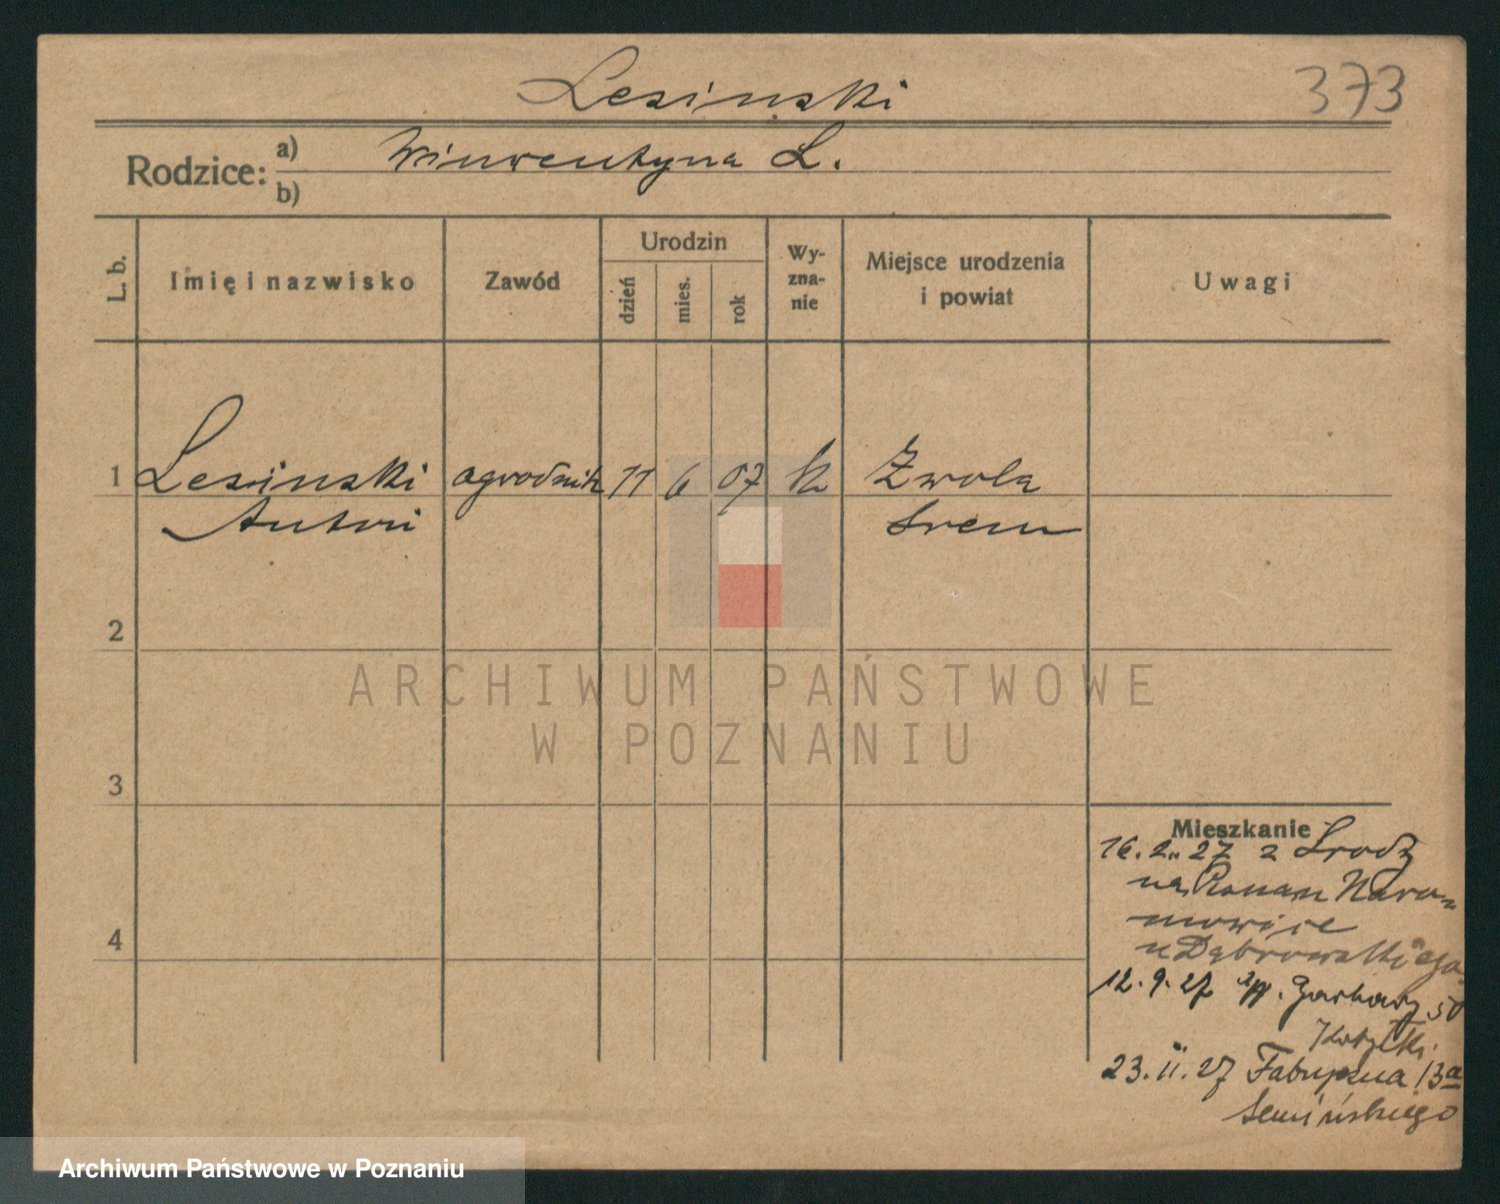 Lesinski
373
Rodzice: a) Winwentyna L.
b)
L. b.
Imię i nazwisko
Zawód
Urodzin
dzień
mies.
rok
Wy-
zna-
nie
Miejsce urodzenia
i powiat
Uwagi
1 Lesinski ogrodnik 11 6 07 k Zwola
Antoni Srem
2
3
4
Mieszkanie
16.2.27 z Srody
na Naro-
mowice
u Dąbrowskiego
12.9.27 50
23.11.27 Fabryczna 13a
Semińskiego
ARCHIWUM PAŃSTWOWE
W POZNANIU
Archiwum Państwowe w Poznaniu